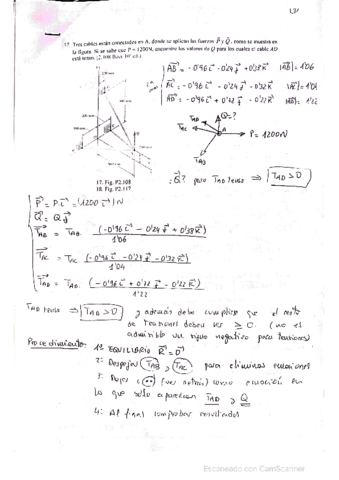 17. Tres cables están conectados en A, donde se aplican las fuerzas P y Q, como se muestra en
la figura. Si se sabe que P = 1200N, encuentre los valores de Q para los cuales el cable AD
está tenso.
AB = - 0'96 i - 0'24 j + 0'38 k |AB| = 1'06
AC = - 0'96 i - 0'24 j - 0'32 k |AC| = 1'04
AD = - 0'96 i + 0'72 j - 0'22 k |AD| = 1'22
T_AD Q=?
T_AC A P = 1200N
T_AB
17. Fig. P2.108
18. Fig. P2.117
¿Q? para T_AD tenso ⇒ T_AD > 0
P = P.i = (1200 i) N
Q = Q j
T_AB = T_AB. (-0'96 i - 0'24 j + 0'38 k) / 1'06
T_AC = T_AC (-0'96 i - 0'24 j - 0'32 k) / 1'04
T_AD = T_AD. (-0'96 i + 0'72 j - 0'22 k) / 1'22
T_AD tenso ⇒ T_AD > 0 y además debe cumplirse que el resto
de tensiones deben ser ≥ 0. (no es
admisible un signo negativo para tensiones)
Procedimiento: 1º EQUILIBRIO R = 0
2: Despejar T_AB y T_AC para eliminar ecuaciones
3: (ver notas) como ecuación en
lo que sólo aparezcan T_AD y Q
4: Al final comprobar resultados
Escaneado con CamScanner